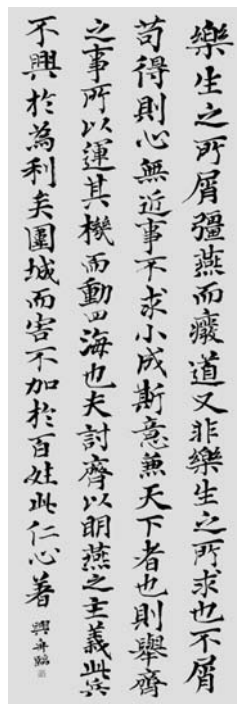 樂生之所屑彊燕而癈道又非樂生之所求也不屑
苟得則心無近事不求小成斯意兼天下者也則舉齊
之事所以運其機而動四海也夫討齊以明燕之主義此兵
不興於為利矣圍城而害不加於百姓此仁心著
興舟臨